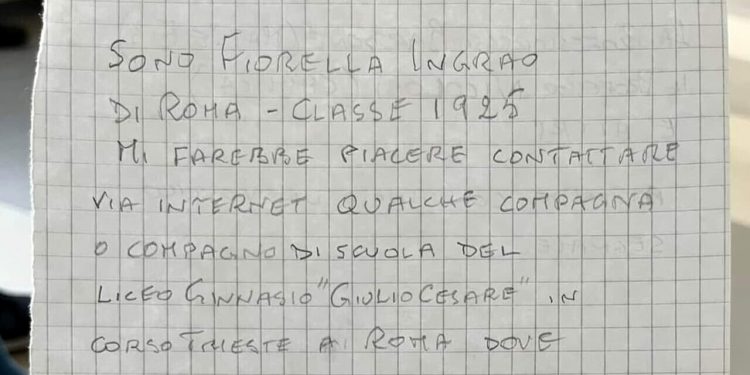 SONO FIORELLA INGRAO
DI ROMA - CLASSE 1925
MI FAREBBE PIACERE CONTATTARE
VIA INTERNET QUALCHE COMPAGNA
O COMPAGNO DI SCUOLA DEL
LICEO GINNASIO "GIULIO CESARE" IN
CORSO TRIESTE A ROMA DOVE